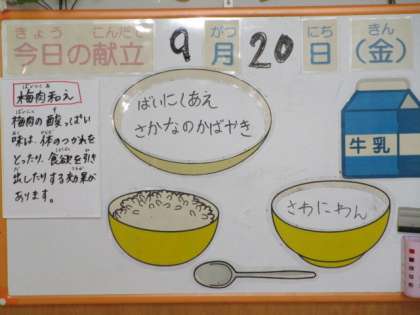 きょう こんだて
今日の献立
9
がつ
月
20
にち
日
きん
(金)
ばいにくあ
梅肉和え
ばいにく す
梅肉の酸っぱい
味は、体のつかれを
とったり、食欲を引き
出したりする効果が
あります。
ばいにくあえ
さかなのかばやき
牛乳
さわにわん